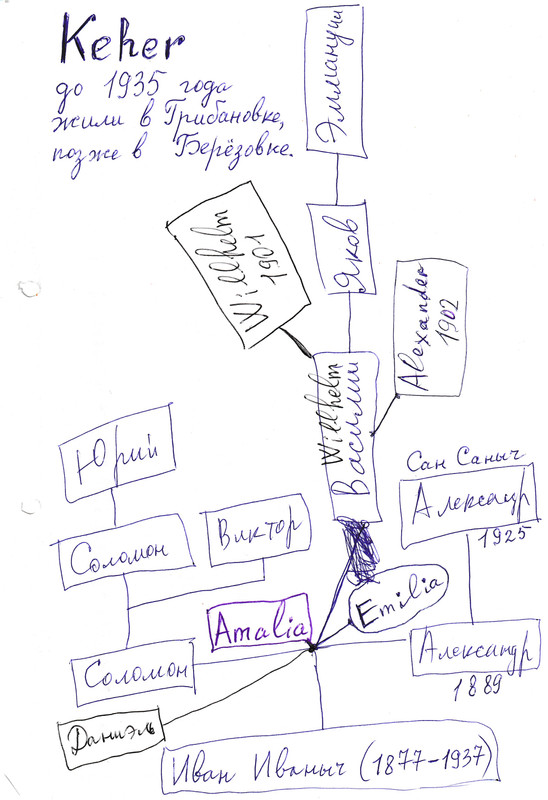 Keher
до 1935 года
жили в Грибановке,
позже в Берёзовке.
Эммануил
Яков
Willhelm
1901
Alexander
1902
Willhelm
Василий
Юрий
Соломон
Виктор
Сан Саныч
Александр
1925
Amalia
Emilia
Соломон
Александр
1889
Даниэль
Иван Иваныч (1877-1937)